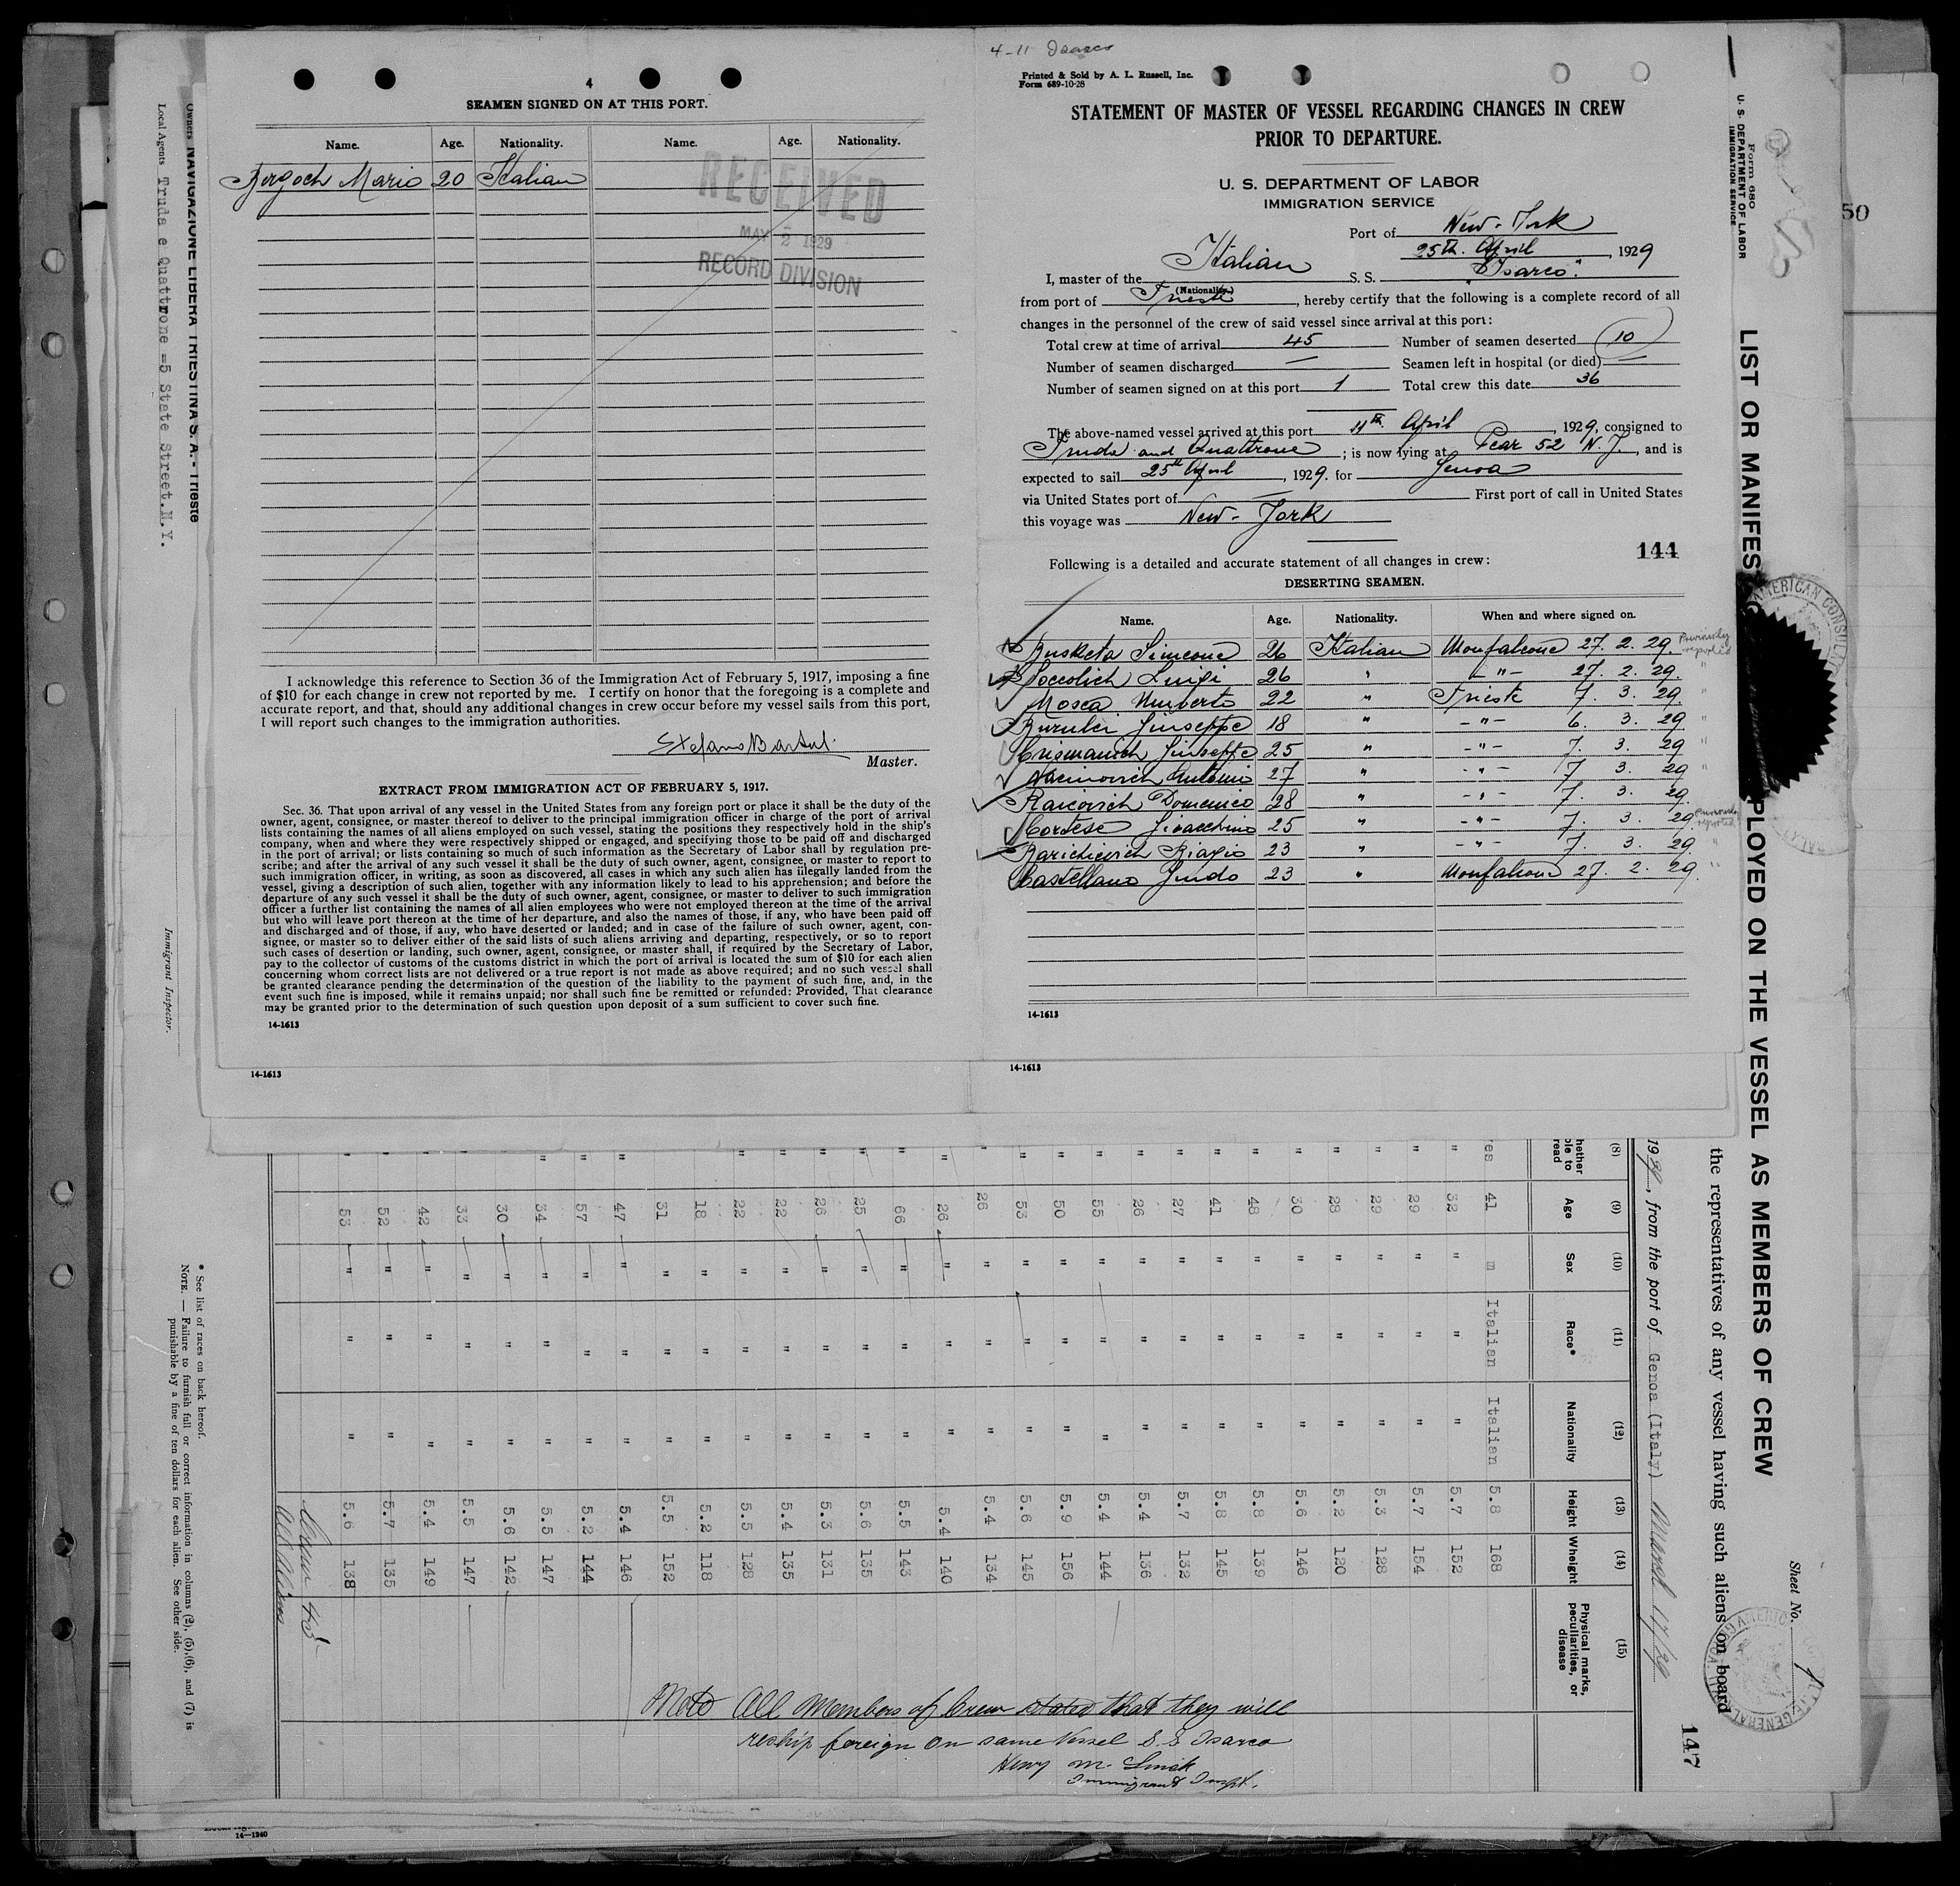 4
SEAMEN SIGNED ON AT THIS PORT.
Name. Age. Nationality. Name. Age. Nationality.
Mario 20 Italian
RECEIVED
MAY 2 1929
RECORD DIVISION
I acknowledge this reference to Section 36 of the Immigration Act of February 5, 1917, imposing a fine
of $10 for each change in crew not reported by me. I certify on honor that the foregoing is a complete and
accurate report, and that, should any additional changes in crew occur before my vessel sails from this port,
I will report such changes to the immigration authorities.
Stefano
Master.
EXTRACT FROM IMMIGRATION ACT OF FEBRUARY 5, 1917.
Sec. 36. That upon arrival of any vessel in the United States from any foreign port or place it shall be the duty of the
owner, agent, consignee, or master thereof to deliver to the principal immigration officer in charge of the port of arrival
lists containing the names of all aliens employed on such vessel, stating the positions they respectively hold in the ship's
company, when and where they were respectively shipped or engaged, and specifying those to be paid off and discharged
in the port of arrival; or lists containing so much of such information as the Secretary of Labor shall by regulation pre-
scribe; and after the arrival of any such vessel it shall be the duty of such owner, agent, consignee, or master to report to
such immigration officer, in writing, as soon as discovered, all cases in which any such alien has illegally landed from the
vessel, giving a description of such alien, together with any information likely to lead to his apprehension; and before the
departure of any such vessel it shall be the duty of such owner, agent, consignee, or master to deliver to such immigration
officer a further list containing the names of all alien employees who were not employed thereon at the time of the arrival
but who will leave port thereon at the time of her departure, and also the names of those, if any, who have been paid off
and discharged and of those, if any, who have deserted or landed; and in case of the failure of such owner, agent, con-
signee, or master so to deliver either of the said lists of such aliens arriving and departing, respectively, or so to report
such cases of desertion or landing, such owner, agent, consignee, or master shall, if required by the Secretary of Labor,
pay to the collector of customs of the customs district in which the port of arrival is located the sum of $10 for each alien
concerning whom correct lists are not delivered or a true report is not made as above required; and no such vessel shall
be granted clearance pending the determination of the question of the liability to the payment of such fine, and, in the
event such fine is imposed, while it remains unpaid; nor shall such fine be remitted or refunded: Provided, That clearance
may be granted prior to the determination of such question upon deposit of a sum sufficient to cover such fine.
14-1613
14-1613
4-11 Isarco
Printed & Sold by A. L. Russell, Inc.
Form 689-10-28
STATEMENT OF MASTER OF VESSEL REGARDING CHANGES IN CREW
PRIOR TO DEPARTURE.
U. S. DEPARTMENT OF LABOR
IMMIGRATION SERVICE
Port of New-York
25th. April, 1929
I, master of the Italian S. S. "Isarco"
(Nationality.)
from port of Trieste, hereby certify that the following is a complete record of all
changes in the personnel of the crew of said vessel since arrival at this port:
Total crew at time of arrival 45 Number of seamen deserted 10
Number of seamen discharged — Seamen left in hospital (or died) —
Number of seamen signed on at this port 1 Total crew this date 36
The above-named vessel arrived at this port 11th. April, 1929, consigned to
Truda and Quattrone; is now lying at Pear 52 N. J., and is
expected to sail 25th April, 1929. for Genoa
via United States port of — First port of call in United States
this voyage was New-York
144
Following is a detailed and accurate statement of all changes in crew:
DESERTING SEAMEN.
Name. Age. Nationality. When and where signed on.
Simeone 26 Italian Monfalcone 27. 2. 29. Previously reported
Luigi 26 " -"- 27. 2. 29. "
Mosca Umberto 22 " Trieste 7. 3. 29. "
Giuseppe 18 " -"- 6. 3. 29 "
Crismanich Giuseppe 25 " -"- 7. 3. 29 "
Antonio 27 " -"- 7 3. 29 "
Raicovich Domenico 28 " -"- 7. 3. 29.
Cortese Gioacchino 25 " -"- 7. 3. 29 previously reported
Biagio 23 " -"- 7. 3. 29. "
Castellano Guido 23 " Monfalcone 27. 2. 29. "
14-1613
14-1613
Form 680
U. S. DEPARTMENT OF LABOR
IMMIGRATION SERVICE
LIST OR MANIFES PLOYED ON THE VESSEL AS MEMBERS OF CREW
Sheet No. 1
the representatives of any vessel having such aliens on board
147
1929, from the port of Genoa (Italy) March 17/29
AMERICAN CONSUL
50
(8) (9) (10) (11) (12) (13) (14) (15)
hether ble to read Age Sex Race* Nationality Height Wheight Physical marks, peculiarities, or disease
es 41 m Italian Italian 5.8 168
" 32 " " " 5.7 152
" 29 " " " 5.7 154
" 29 " " " 5.3 128
" 28 " " " 5.2 120
" 30 " " " 5.6 146
" 48 " " " 5.8 139
" 41 " " " 5.8 145
" 27 " " " 5.7 132
" 26 " " " 5.4 136
" 55 " " " 5.4 144
" 50 " " " 5.9 156
" 53 " " " 5.6 145
" 26 " " " 5.4 134
" 26 " " " 5.4 140
" 66 " " " 5.5 143
" 25 " " " 5.6 135
" 26 " " " 5.3 131
" 22 " " " 5.4 135
" 22 " " " 5.5 128
18 " " " 5.2 118
31 " " " 5.5 152
" 47 " " " 5.4 146
" 57 " " " 5.2 144
" 34 " " " 5.5 147
30 " " " 5.6 142
" 33 " " " 5.5 147
" 42 " " " 5.4 149
" 52 " " " 5.7 135
" 53 " " " 5.6 138
Crew 45
All Aliens
Note All Members of Crew stated that they will
reship foreign on same Vessel S.S Isarco
Henry M.
Immigrant Inspt.
* See list of races on back hereof.
NOTE. — Failure to furnish full or correct information in columns (2), (5), (6), and (7) is
punishable by a fine of ten dollars for each alien. See other side.
Owners NAVIGAZIONE LIBERA TRIESTINA S. A. - Trieste
Local Agents Truda e Quattrone =5 State Street.N.Y.
Immigrant Inspector.
14-1240